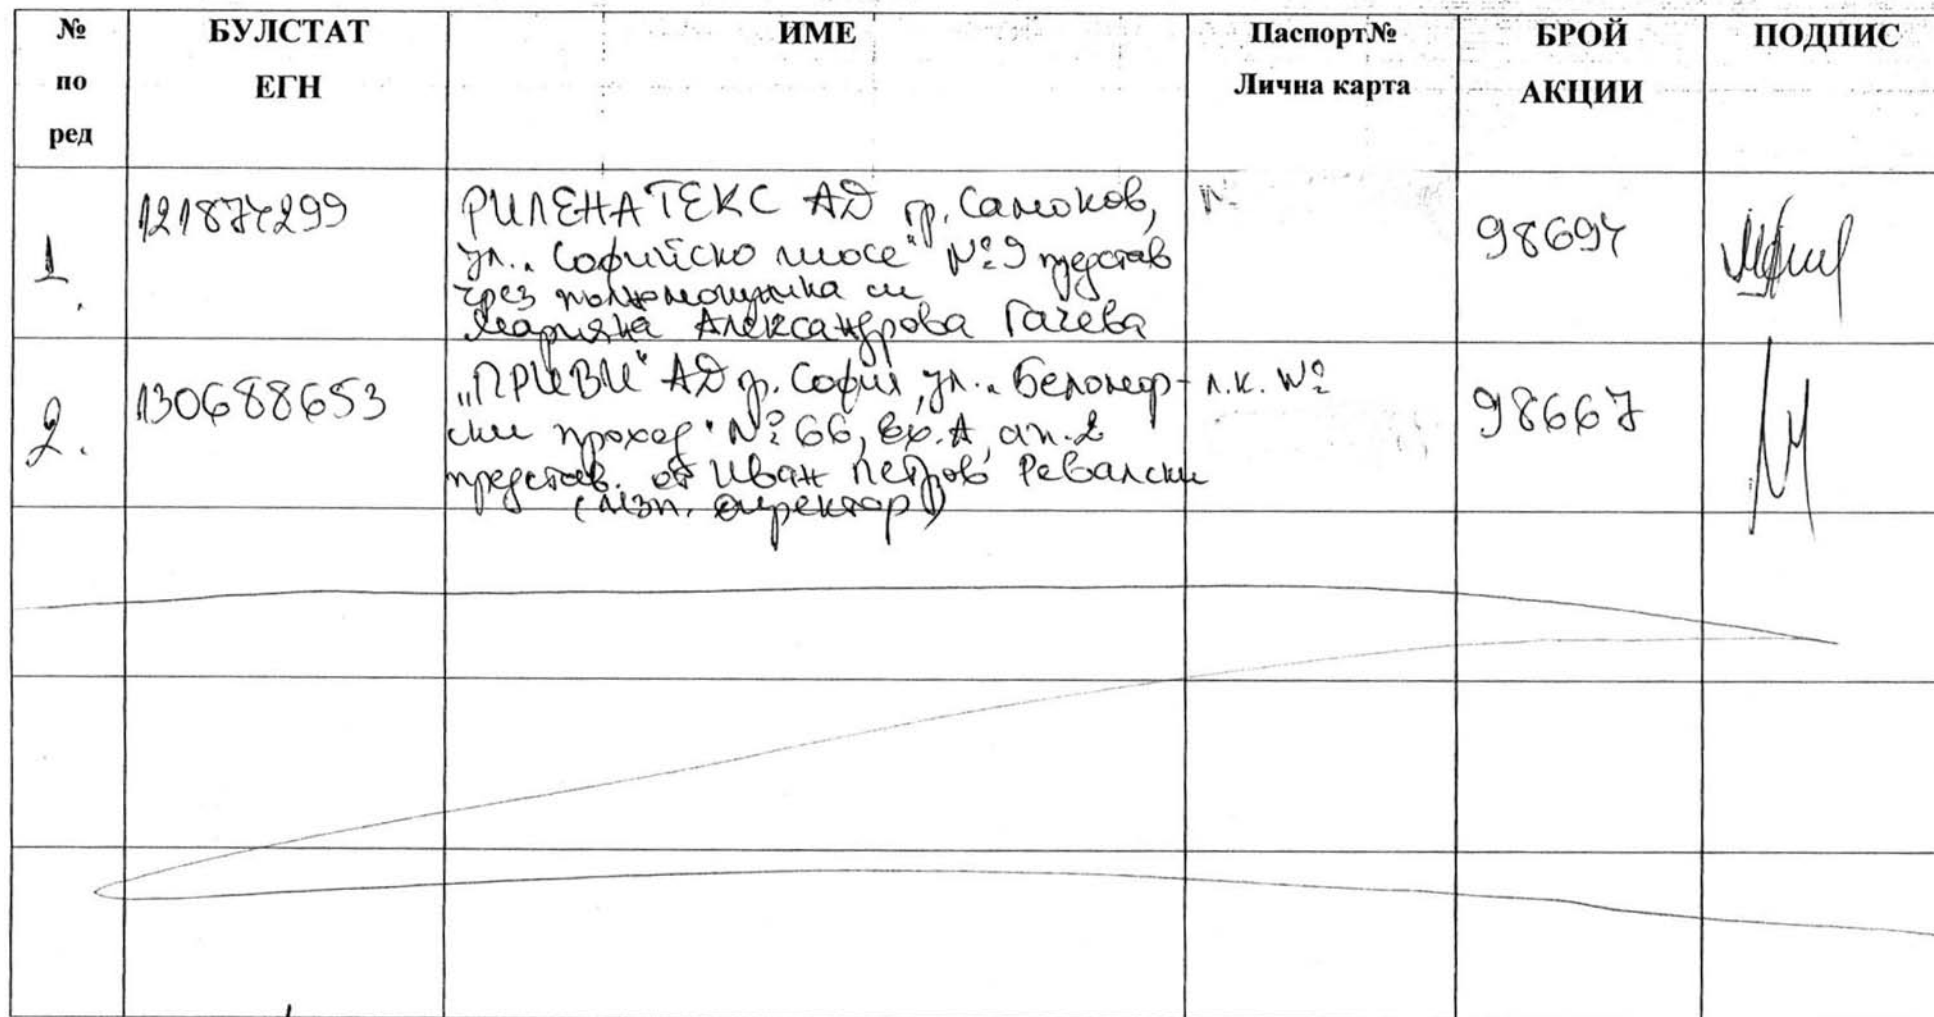 № по ред БУЛСТАТ ЕГН ИМЕ Паспорт№ Лична карта БРОЙ АКЦИИ ПОДПИС
1. 121874299 РИЛЕНАТЕКС АД гр. Самоков, № 98694
ул. „Софийско шосе" №9 представ
чрез пълномощника си
Марияна Александрова Гачева
2. 130688653 „ПРИВИ" АД гр. София, ул. „Беломор- л.к. № 98667
ски проход" № 66, вх. А, ап. 2
представ. от Иван Петров Ревалски
(изп. директор)